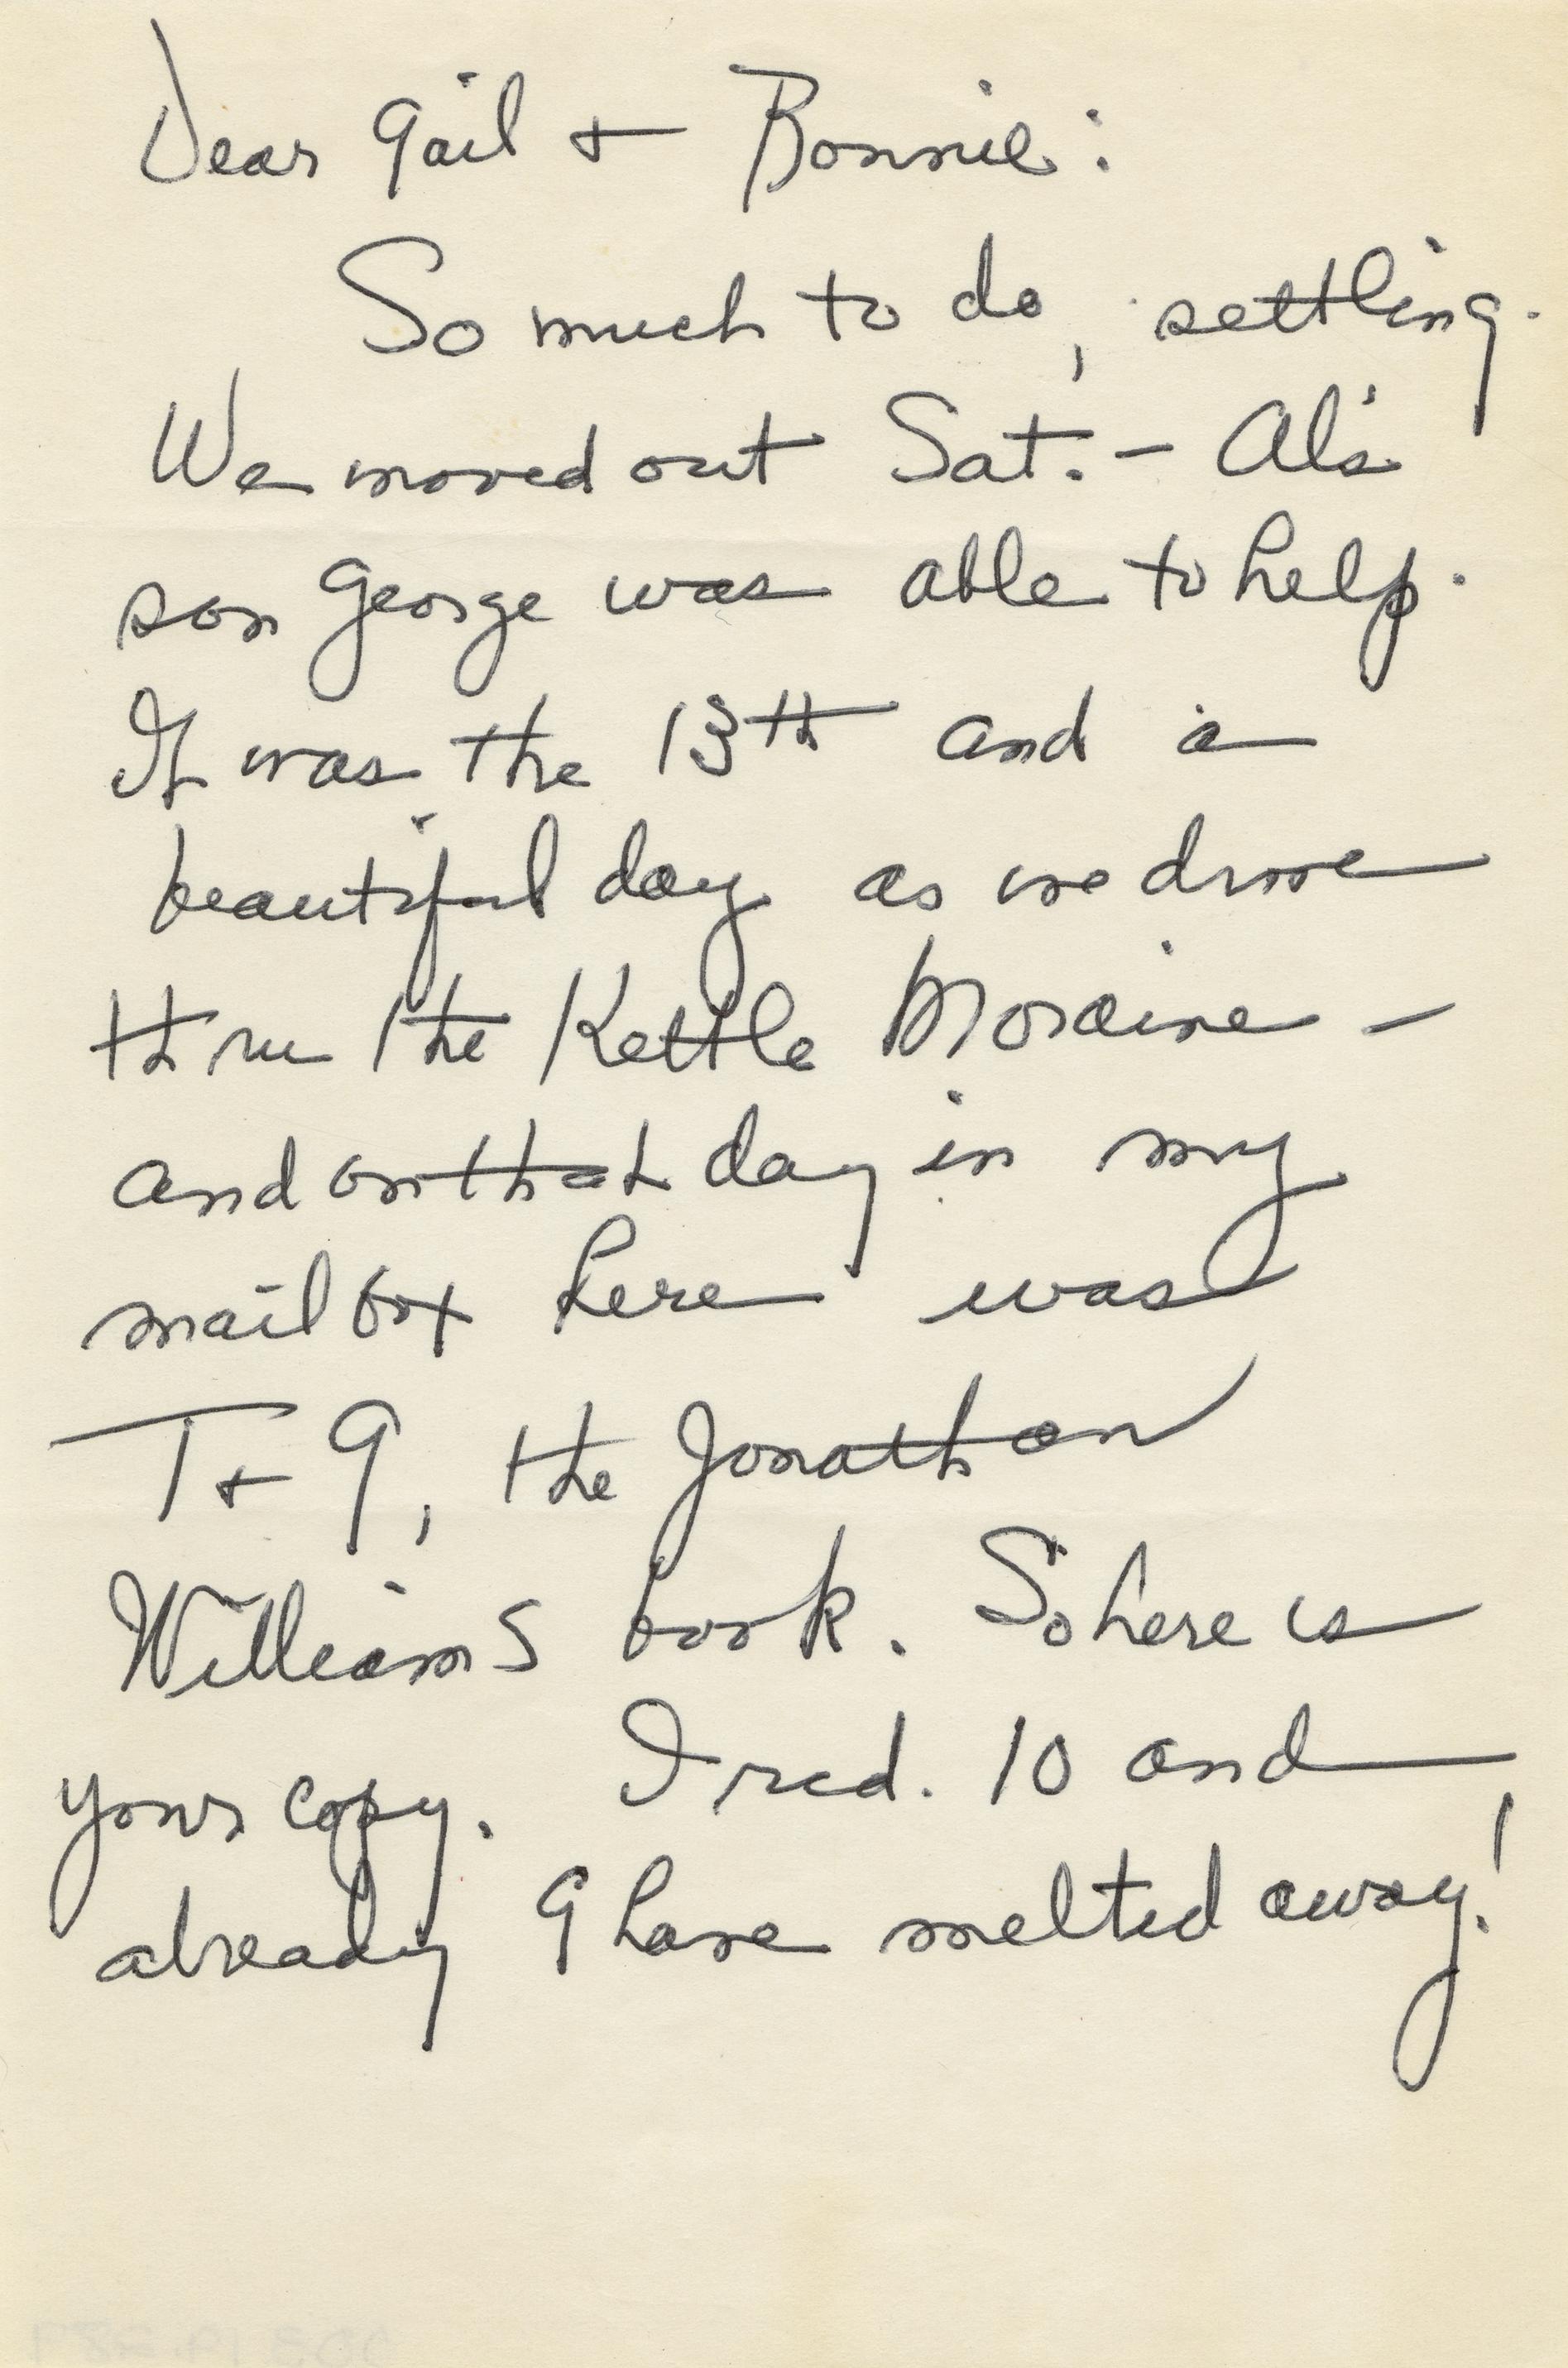 Dear Gail + Bonnie:
So much to do, settling.
We moved out Sat. - Al's
son George was able to help.
It was the 13th and a
beautiful day as we drove
thru the Kettle Moraine -
and on that day in my
mailbox here was
T + G, the Jonathan
Williams book. So here is
your copy. I recd. 10 and
already 9 have melted away!